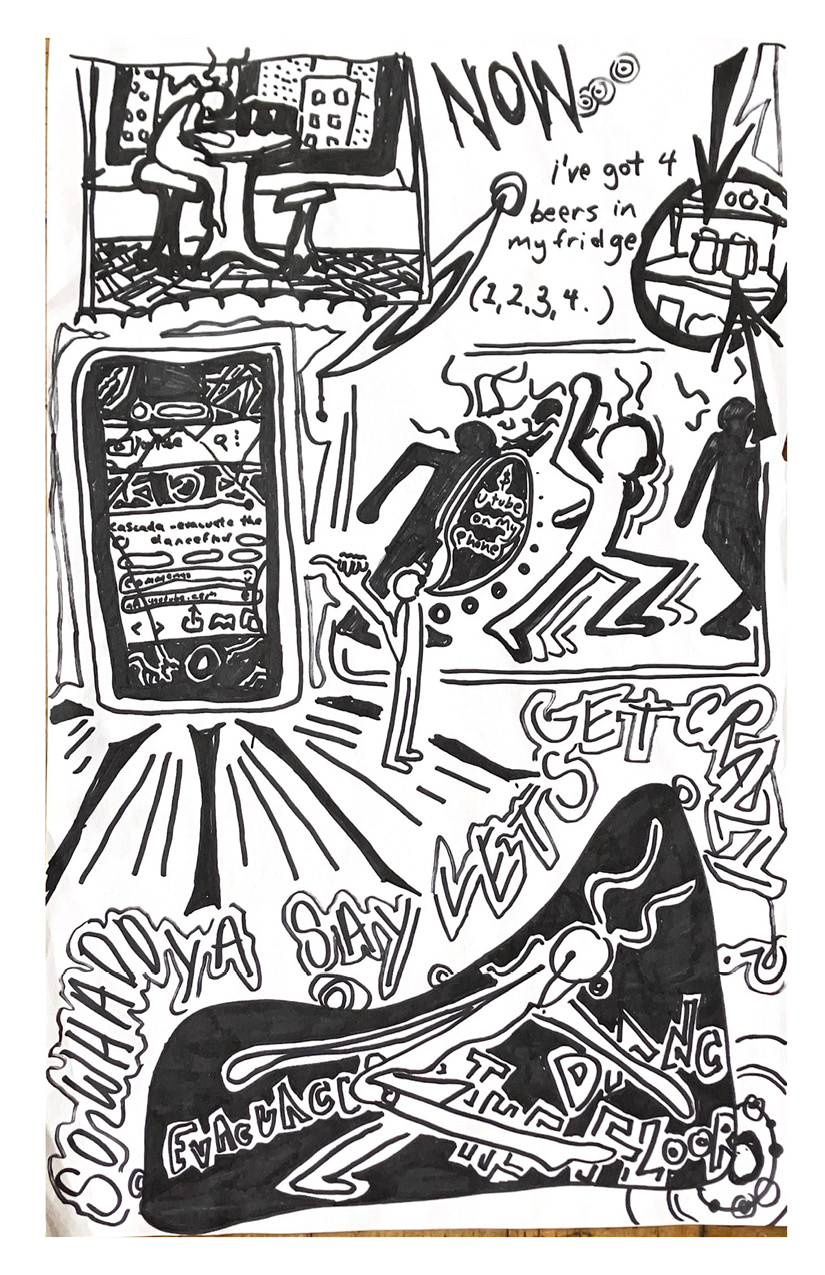 NOW...
i've got 4
beers in
my fridge
(1,2,3,4.)
cascada -evacuate the
dancefnr
comments
youtube.com
&
utube
on my
phone
SO WHADDYA SAY LET'S GET CRAZY
EVACUACE
THE DANC
FLOOR